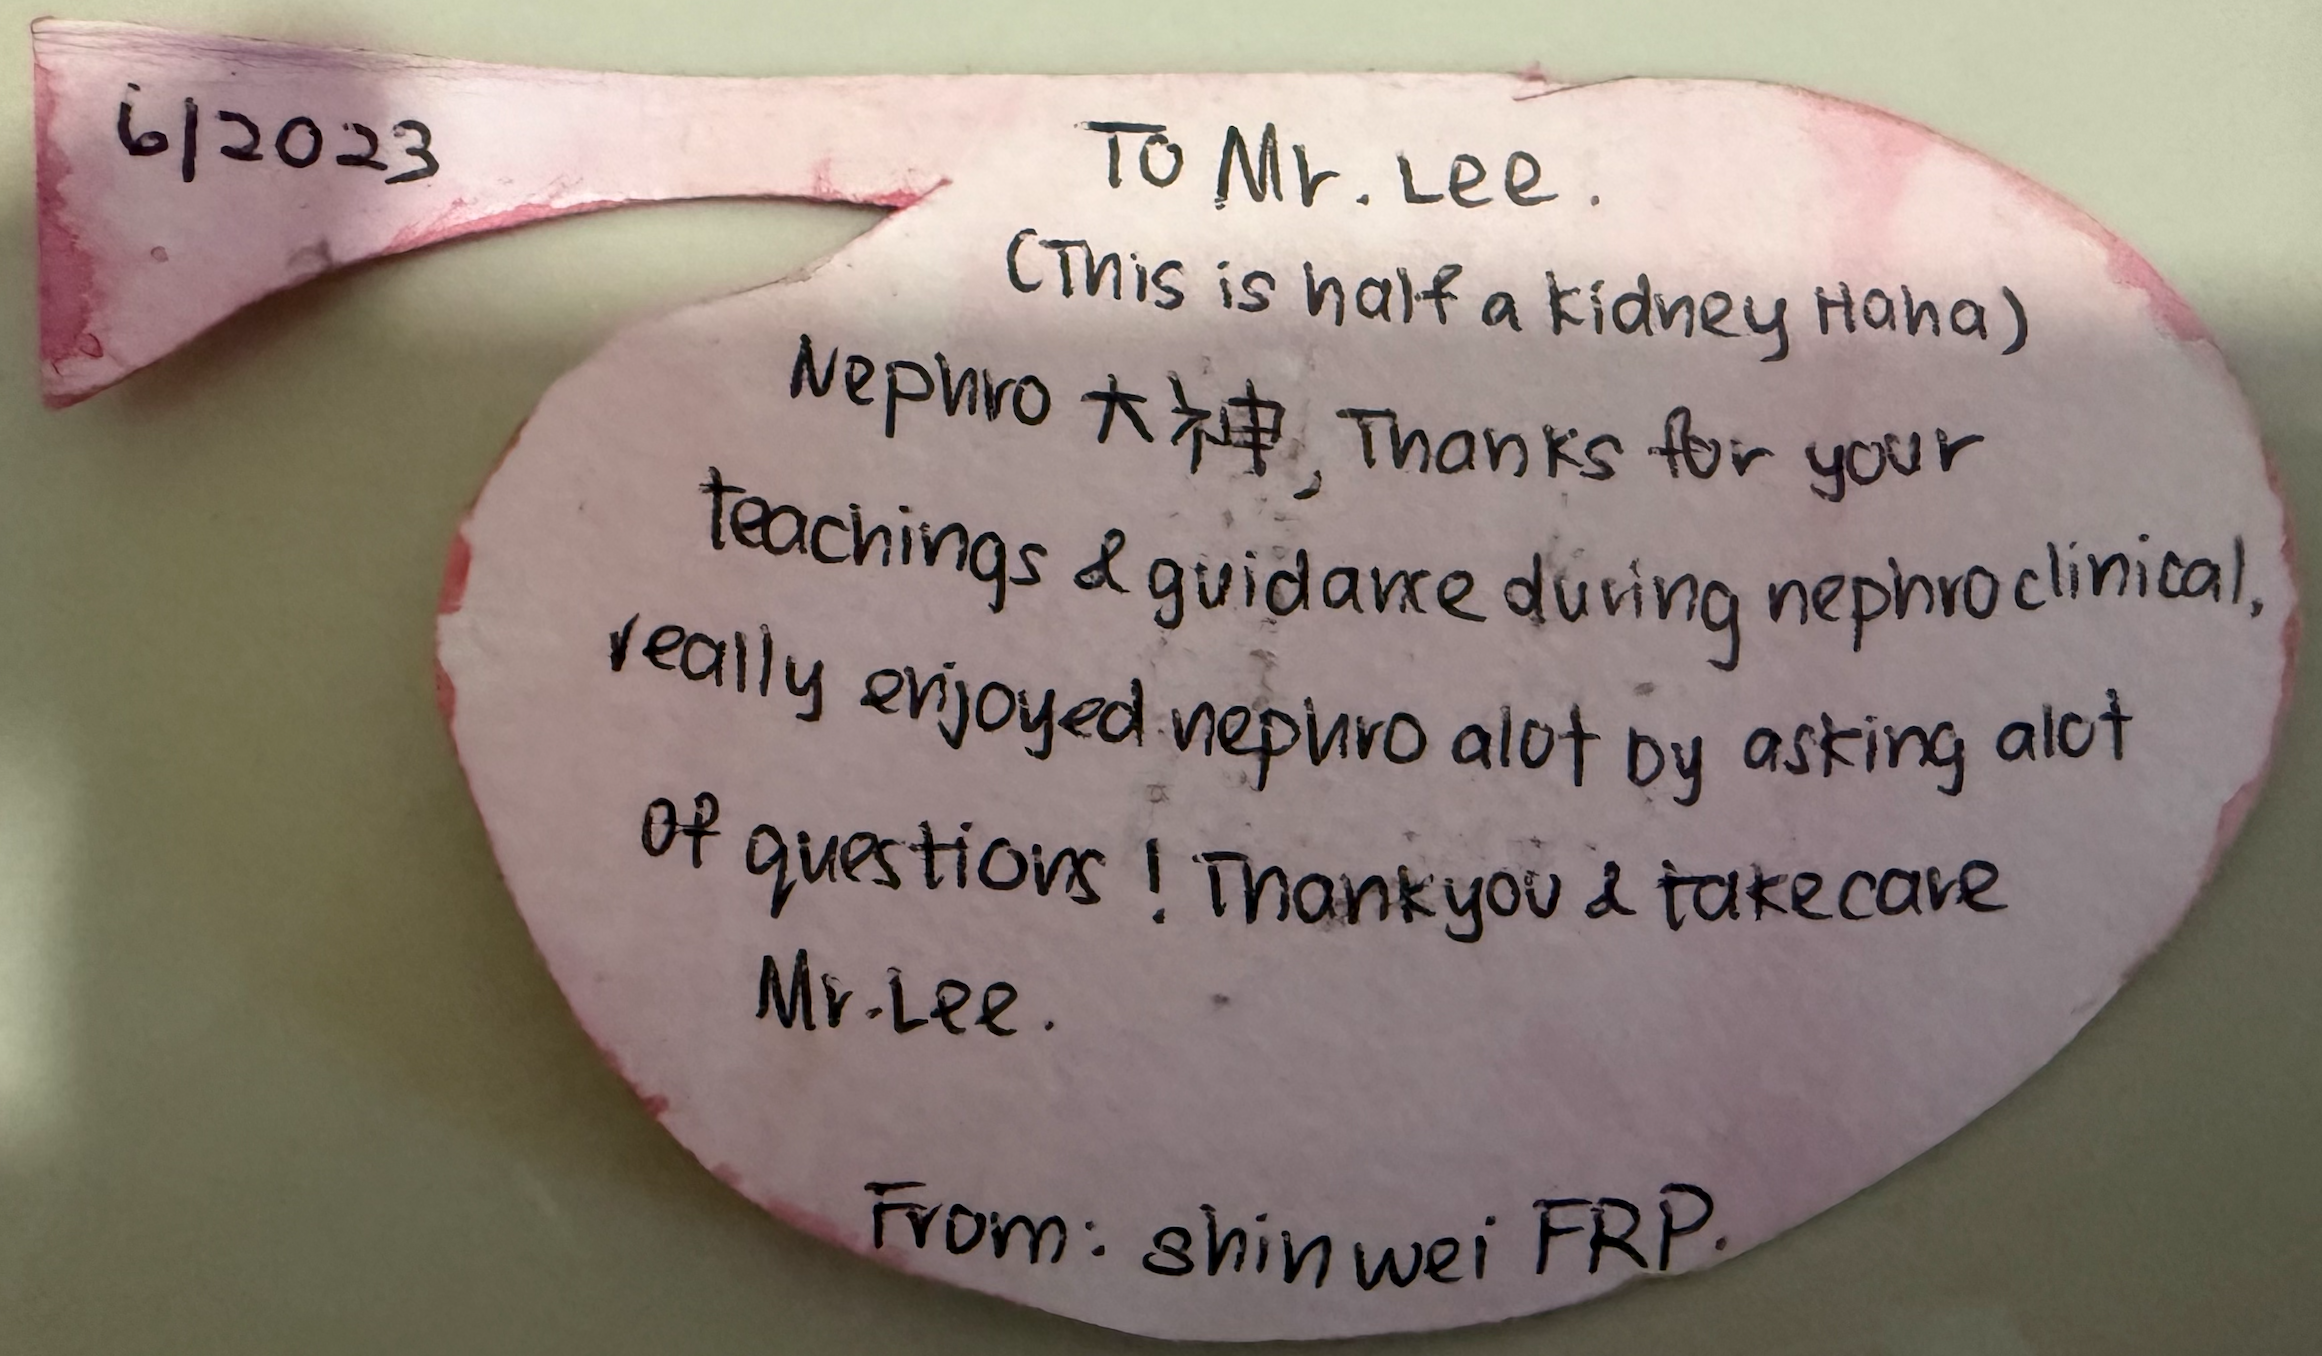 6/2023
To Mr. Lee.
(This is half a kidney Haha)
Nephro 大神, Thanks for your
teachings & guidance during nephro clinical,
really enjoyed nephro alot by asking alot
of questions! Thank you & take care
Mr. Lee.
From: shin wei FRP.